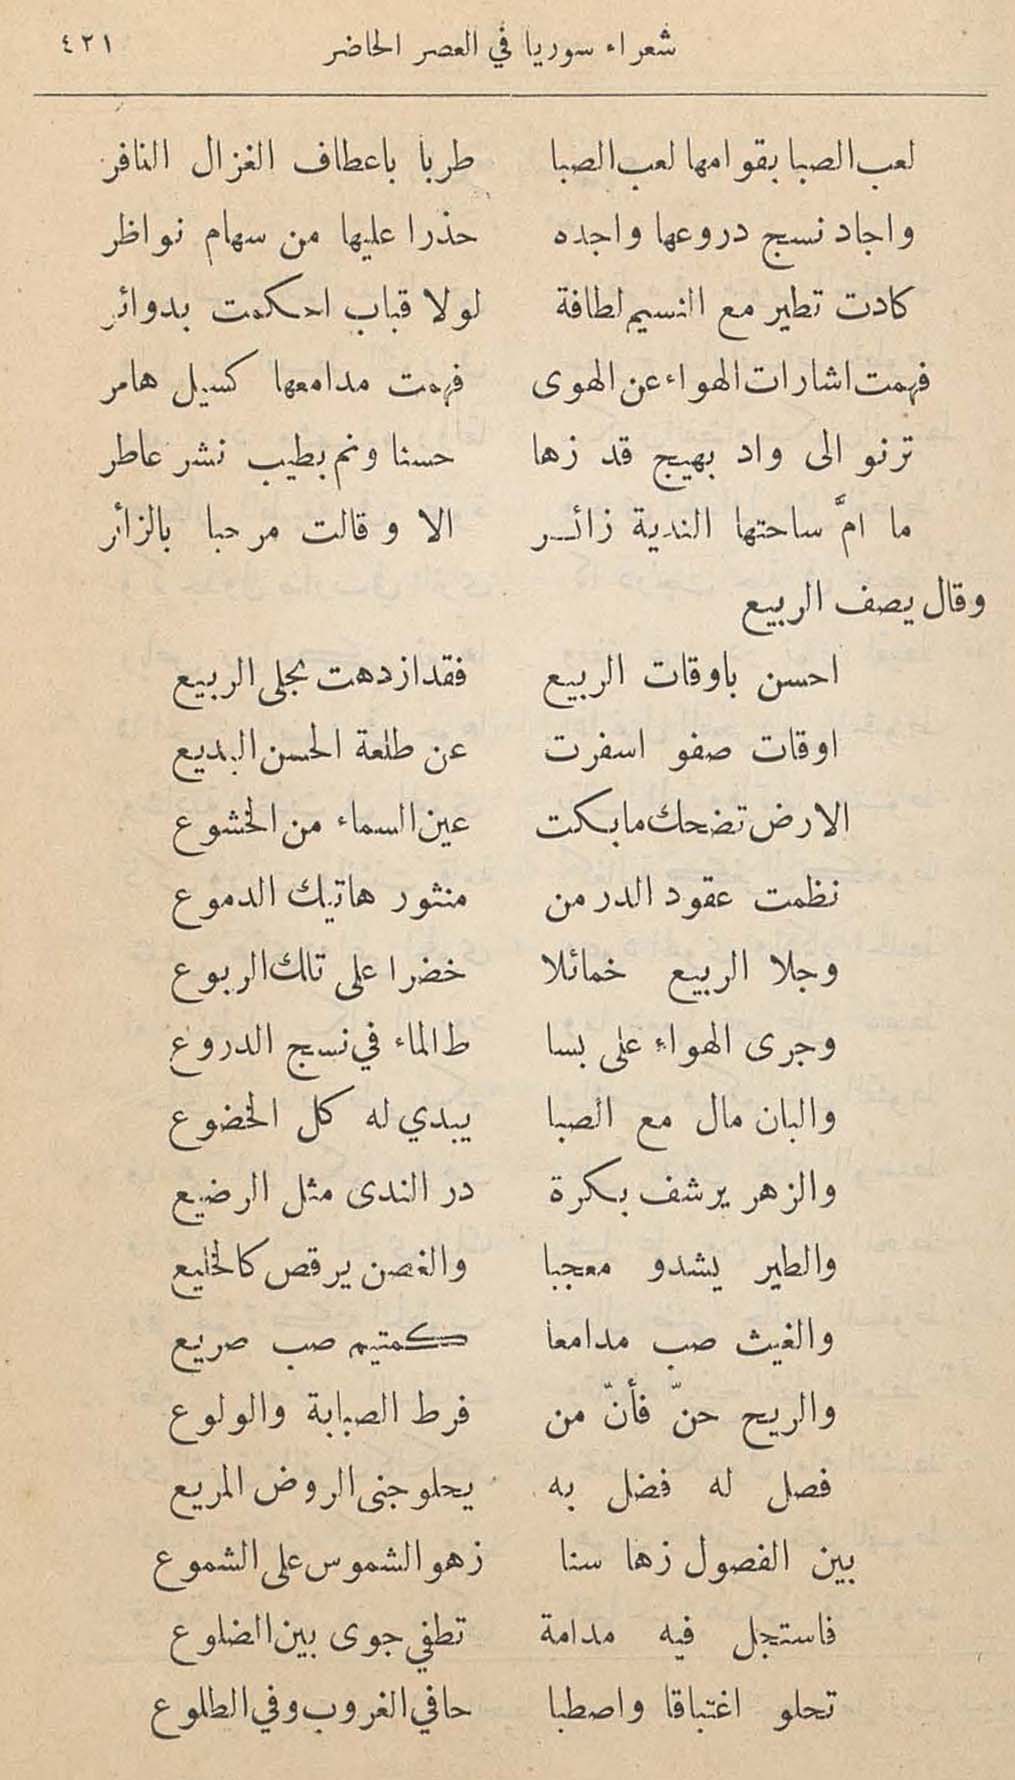 شعراء سوريا في العصر الحاضر ٤٢١
لعب الصبا بقوامها لعب الصبا طربا باعطاف الغزال النافر
واجاد نسج دروعها واجده حذرا عليها من سهام نواظر
كادت تطير مع النسيم لطافة لولا قباب احكمت بدوائر
فهمت اشارات الهواء عن الهوى فهمت مدامعها كسيل هامر
ترنو الى واد بهيج قد زها حسنا ونم بطيب نشر عاطر
ما امَّ ساحتها الندية زائر الا وقالت مرحبا بالزائر
وقال يصف الربيع
احسن باوقات الربيع فقد ازدهت بحلى الربيع
اوقات صفو اسفرت عن طلعة الحسن البديع
الارض تضحك ما بكت عين السماء من الخشوع
نظمت عقود الدر من منثور هاتيك الدموع
وجلا الربيع خمائلا خضرا على تلك الربوع
وجرى الهواء على بسا ط الماء في نسج الدروع
والبان مال مع الصبا يبدي له كل الخضوع
والزهر يرشف بكرة در الندى مثل الرضيع
والطير يشدو معجبا والغصن يرقص كالخليع
والغيث صب مدامعا كمتيم صب صريع
والريح حنّ فأنّ من فرط الصبابة والولوع
فصل له فضل به يحلو جنى الروض المريع
بين الفصول زها سنا زهو الشموس على الشموع
فاستجل فيه مدامة تطفي جوى بين الضلوع
تحلو اغتباقا واصطبا حا في الغروب وفي الطلوع